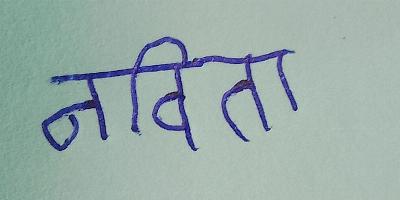 नविता